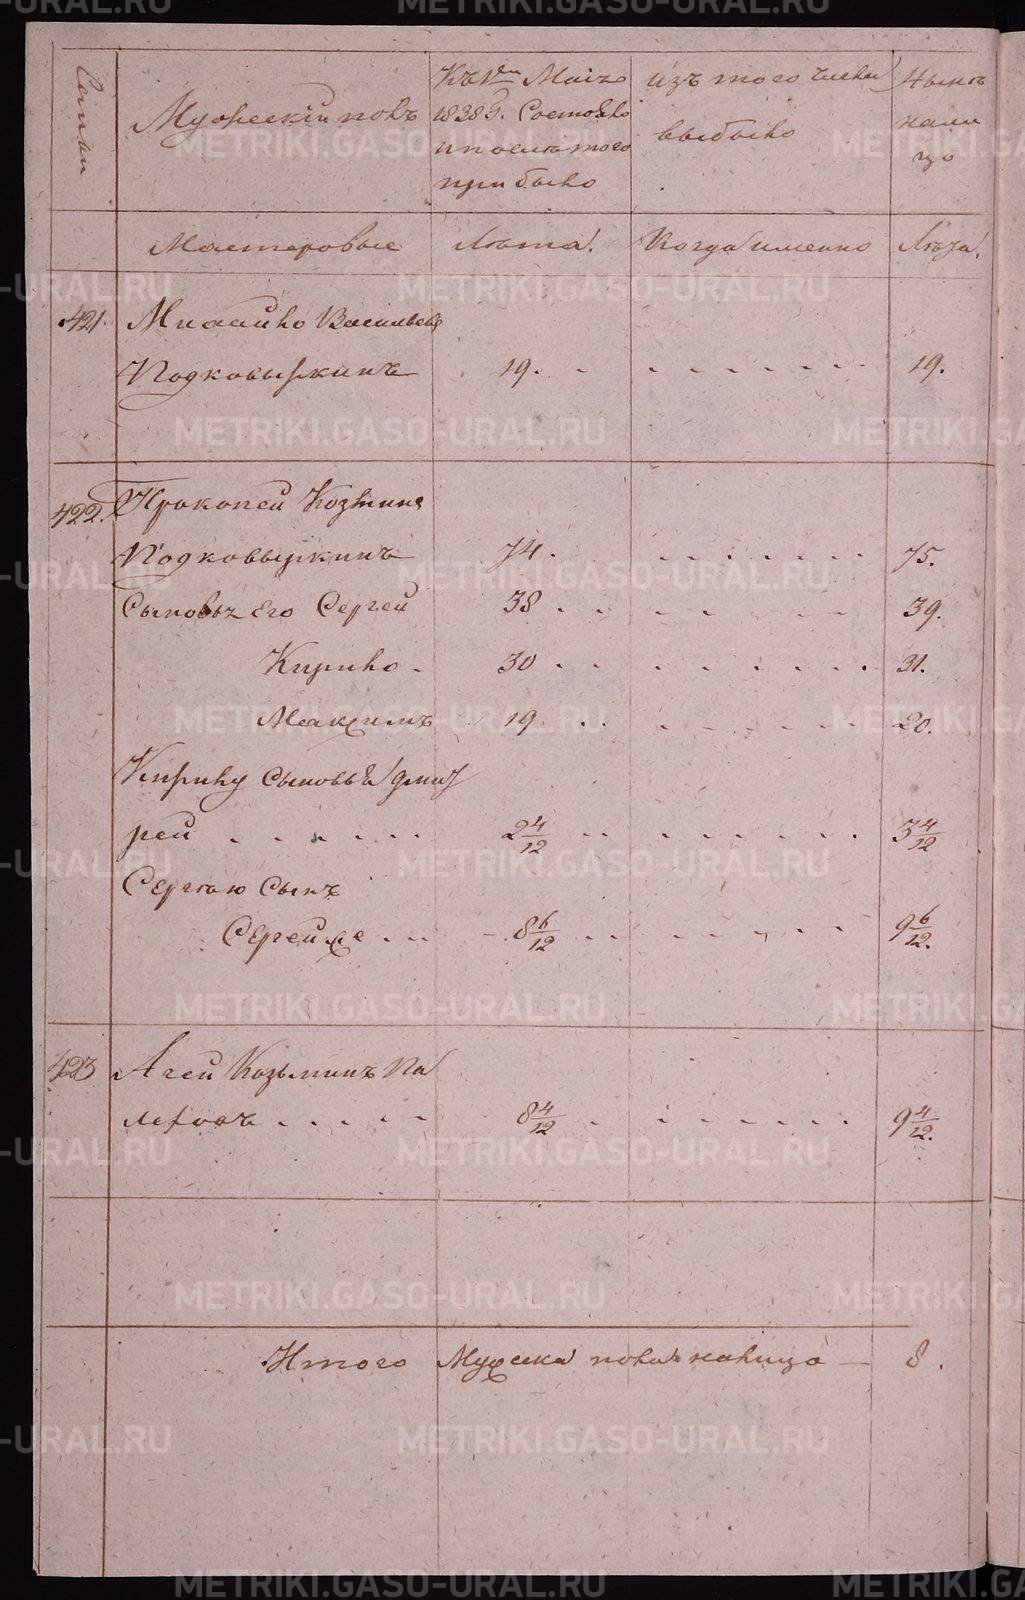 Семьи
Мужескiй полъ
Къ 1му Маiя
1838 г. Состояло
и после того
прибыло
изъ того числа
выбыло
Ныне
нали
цо
Мастеровые
Лета.
Когда именно
Лета.
421. Михайло Васильевъ
Подковыркинъ 19. 19.
422. Прокопей Козминъ
Подковыркинъ 74. 75.
Сыновья Его Сергей 38 39.
Кирило 30 31.
Максимъ 19 20.
Кирилу сыновья Дмит
рей 2 4/12 3 4/12
Сергею сынъ
Сергей же 8 6/12 9 6/12.
423 Агей Козьминъ Па
8 4/12 9 4/12.
Итого Мужска пола налицо 8.
METRIKI.GASO-URAL.RU